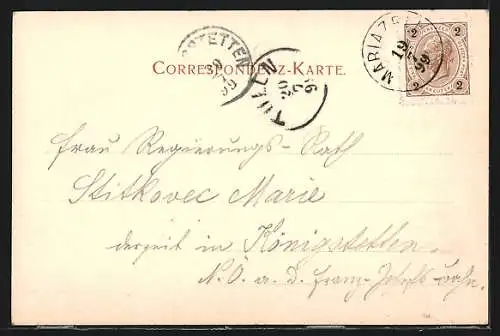 STETTEN
99
TULLN
MARIAZELL
19
99
2 2
2 2
CORRESPONDENZ-KARTE.
Frau Regierungs-Rath
Stitkovec Marie
derzeit in Königstetten.
N. Ö. a. d. Franz-Josefs-bahn.